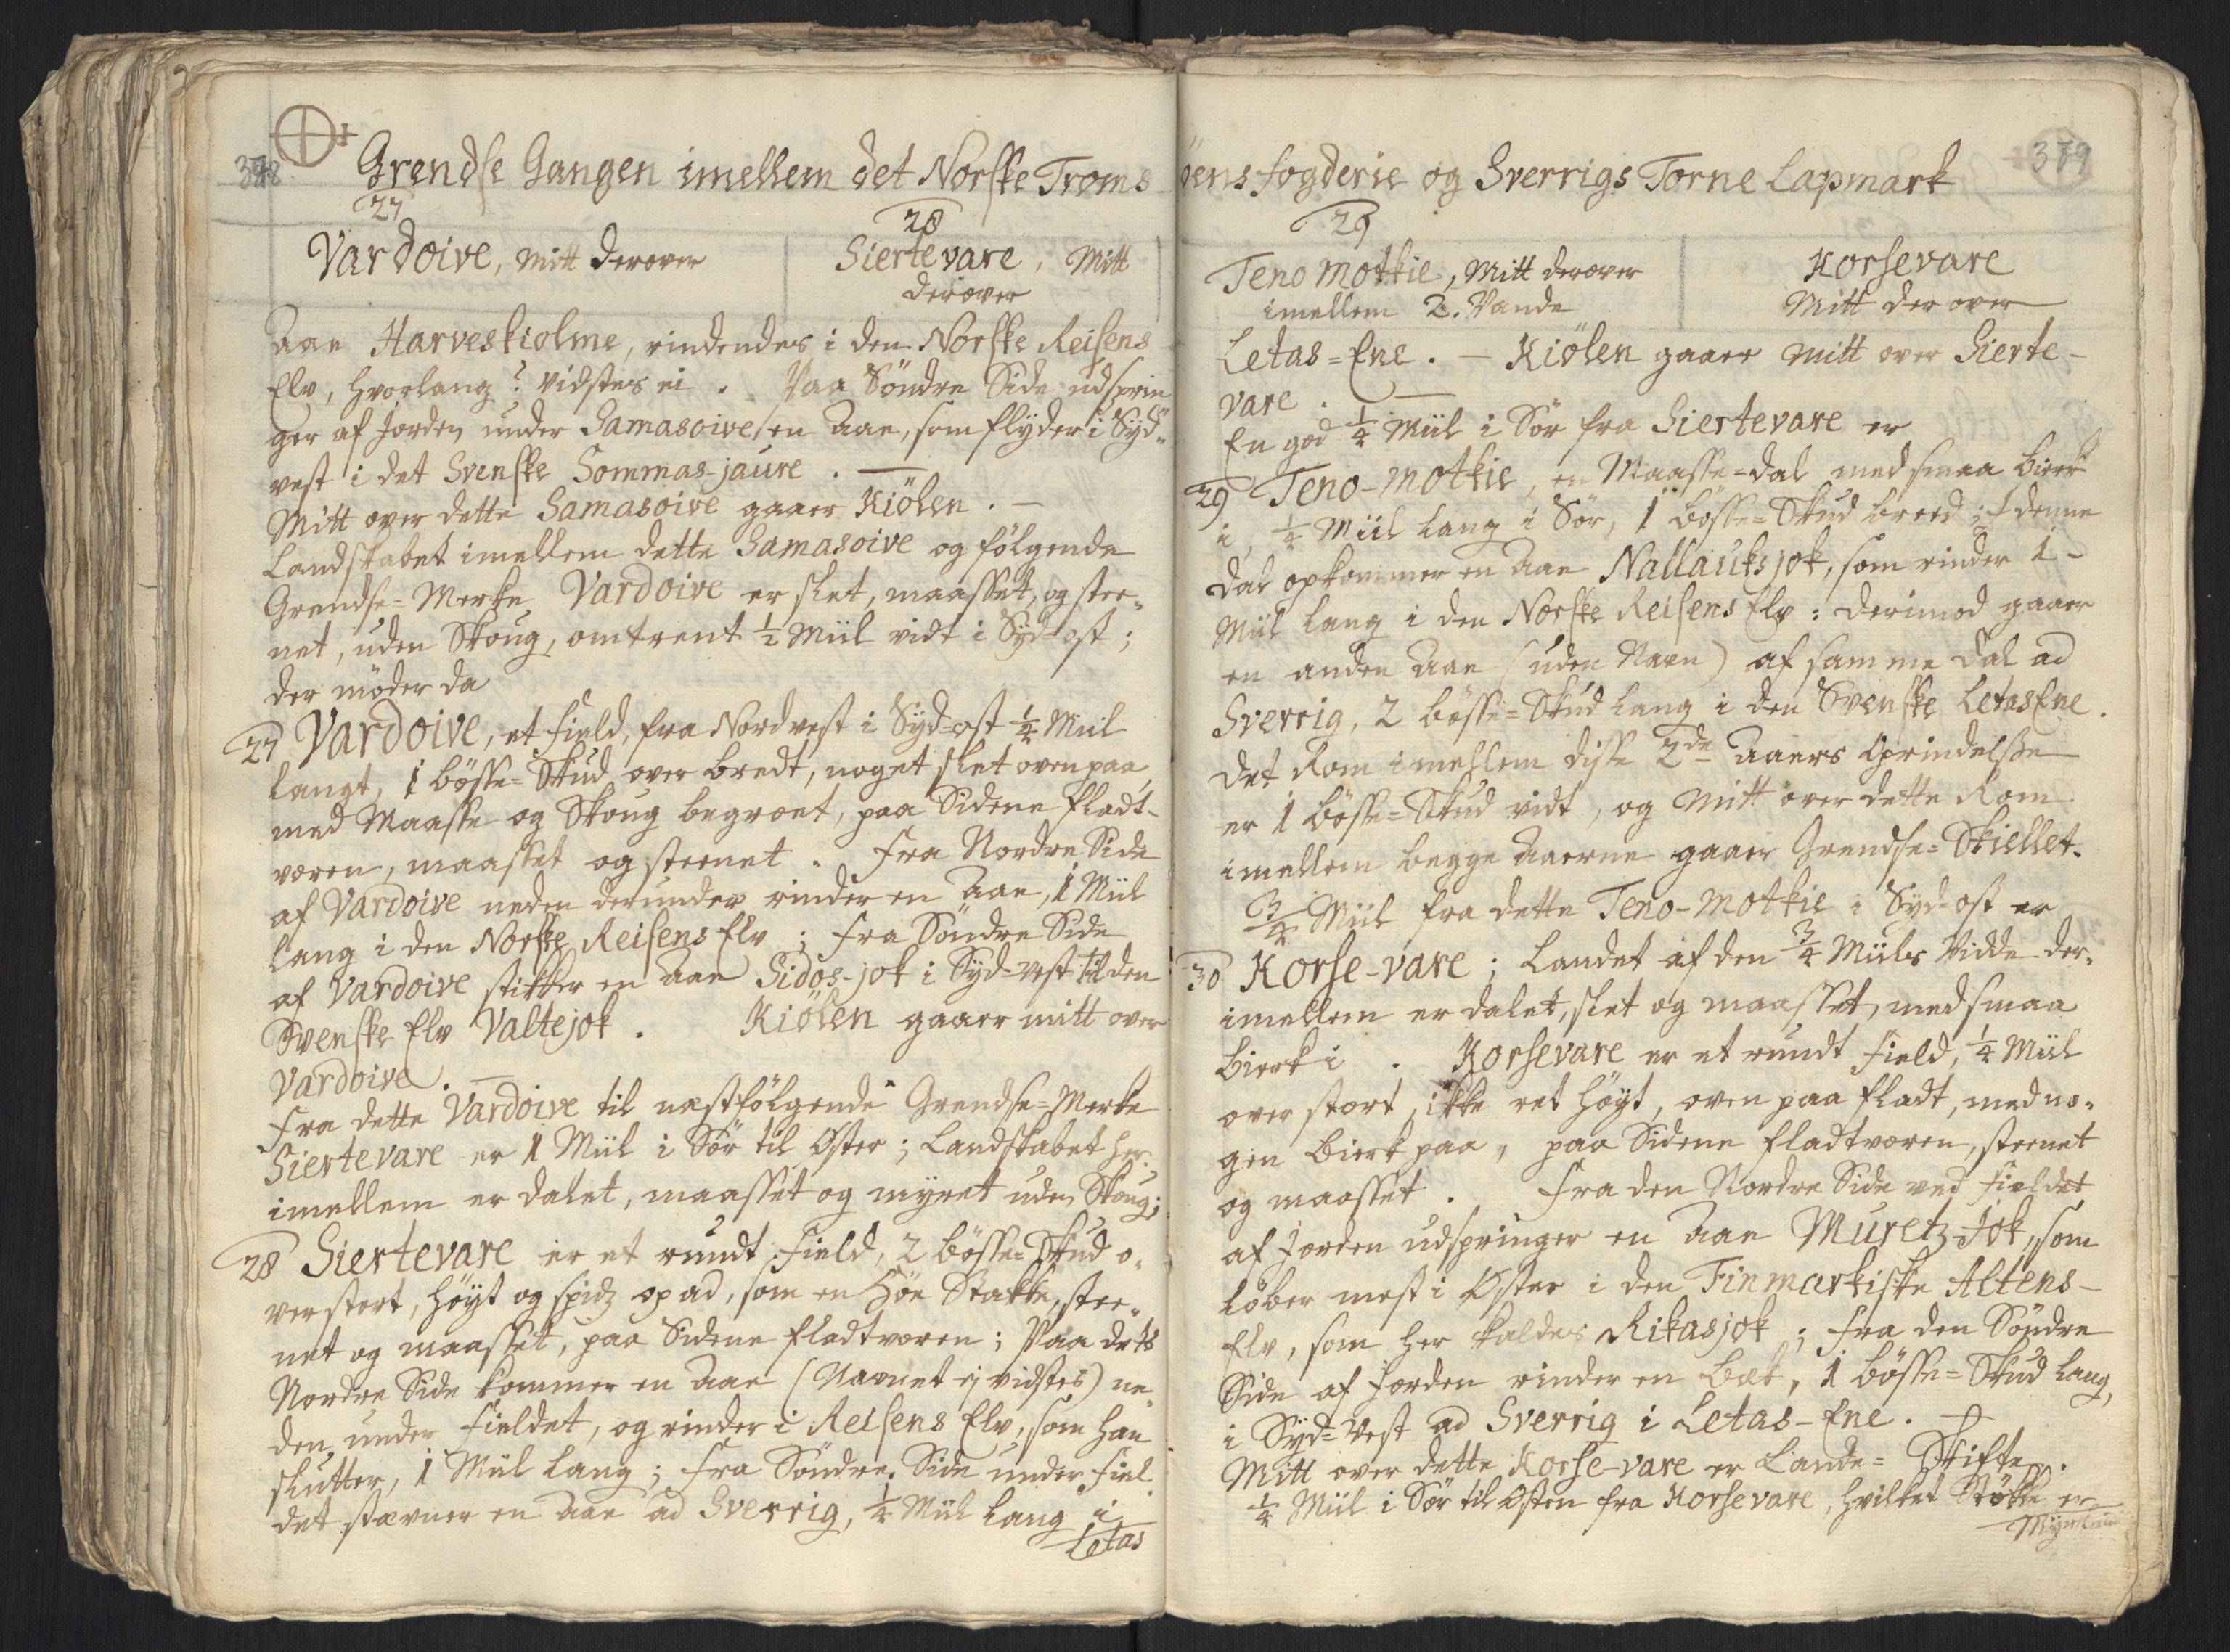 378
Grendse Gangen imellem det Norske Troms
27
28
Vardoive, mitt derover
Siertevare, Mitt
derover
Aae Harveskiolme, rindendes i den Norske Reisens
Elv, hvorlang? vidstes ei. Paa Söndre Side udsprin
ger af Jorden under Samasoive, en Aae, som flyder i Syd-
vest i det Svenske Sommas-jaure. —
Mitt over dette Samasoive gaaer Kiölen. —
Landskabet imellem dette Samasoive og fölgende
Grendse-Merke Vardoive er slet, maasset, og stee-
net, uden Skoug, omtrent ½ Miil vidt i Syd-ost;
der möder da
27 Vardoive, et Field, fra Nordvest i Syd-ost ¼ Miil
langt, 1 bösse-Skud over bredt, noget slet oven paa,
med Maasse og Skoug begroet, paa Sidene fladt-
voren, maasset og steenet. Fra Nordre Side
af Vardoive neden derunder rinder en Aae, 1 Miil
lang i den Norske Reisens Elv; fra Söndre Side
af Vardoive stikker en Aae Sidos-jok i Syd-vest til den
Svenske Elv Valtejok. Kiölen gaaer mitt over
Vardoive. —
Fra dette Vardoive til næstfölgende Grendse-Merke
Siertevare er 1 Miil i Sör til Oster; Landskabet her-
imellem er dalet, maasset og myret uden Skoug;
28 Siertevare er et rundt Field, 2 bösse-Skud o-
ver stort, höyt og spidz op ad, som en Höe Stakke, stee-
net og maasset, paa Sidene fladtvoren; Paa dets
Nordre Side kommer en Aae (Navnet ej vidstes) ne
den under Fieldet, og rinder i Reisens Elv, som han
slutter, 1 Miil lang; fra Söndre Side under Fiel
det stævner en Aae ad Sverrig, ¼ Miil lang i
Letas
öens fogderie og Sverrigs Torne Lapmark
379
29
Teno Motkie, Mitt derover
imellem 2. Vande
Korsevare
Mitt der over
Letas-Ene. — Kiölen gaaer mitt over Sierte-
vare. —
En god ¼ Miil i Sör fra Siertevare er
29 Teno-Motkie, en Maasse-dal med smaa bierk
i, ¼ Miil lang i Sör, 1 bösse-Skud breed; I denne
dal opkommer en Aae Nallauksjok, som rinder 1-
Miil lang i den Norske Reisens Elv: derimod gaaer
en anden Aae (uden Navn) af samme dal ad
Sverrig, 2 bösse-Skud lang i den Svenske Letas Ene.
det Rom imellem disse 2de Aaers Oprindelse
er 1 bösse-Skud vidt, og mitt over dette Rom
imellem begge Aaerne gaaer Grendse-Skiellet.
¾ Miil fra dette Teno-Motkie i Syd-ost er
30 Korse-vare; Landet af den ¾ Miils Vidde der-
imellem er dalet, slet og maasset, med smaa
bierk i. Korsevare er et rundt Field, ¼ Miil
over stort, ikke ret höyt, oven paa fladt, med no-
gen bierk paa, paa Sidene fladtvoren, steenet
og maasset. Fra den Nordre Side ved Fieldet
af Jorden udspringer en Aae Muretz-Jok, som
löber mest i Oster i den Finmarkiske Altens-
Elv, som her kaldes Rikasjok; fra den Söndre
Side af Jorden rinder en bæk, 1 bösse-Skud lang,
i Syd-Vest ad Sverrig i Letas-Ene. —
Mitt over dette Korse-vare er Lande-Skifte.
¼ Miil i Sör til Osten fra Korsevare, hvilket Stökke er